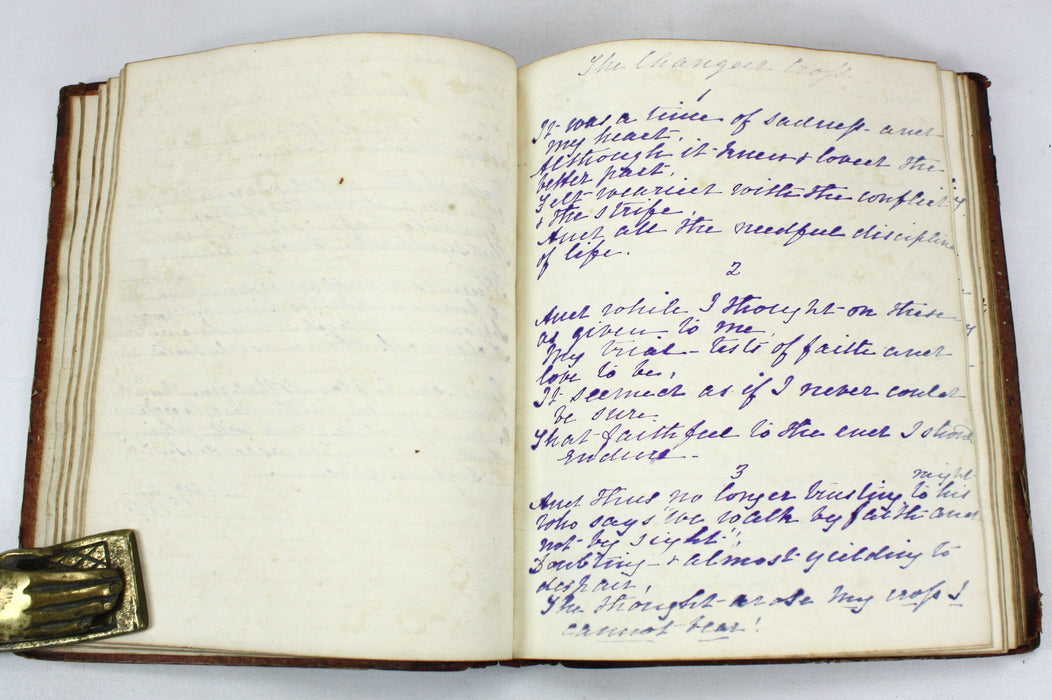 The Changed Cross
1
It was a time of sadness and
my heart,
Although it knew & loved the
better part,
Felt wearied with the conflict
& the strife,
And all the needful discipline
of life.
2
And while I thought on these
as given to me,
My trial-tests of faith and
love to be,
It seemed as if I never could
be sure
That faithful to the end I should
endure.
3
And thus no longer trusting to his
might
Who says "we walk by faith and
not by sight",
Doubting & almost yielding to
despair,
The thought arose My cross I
cannot bear!